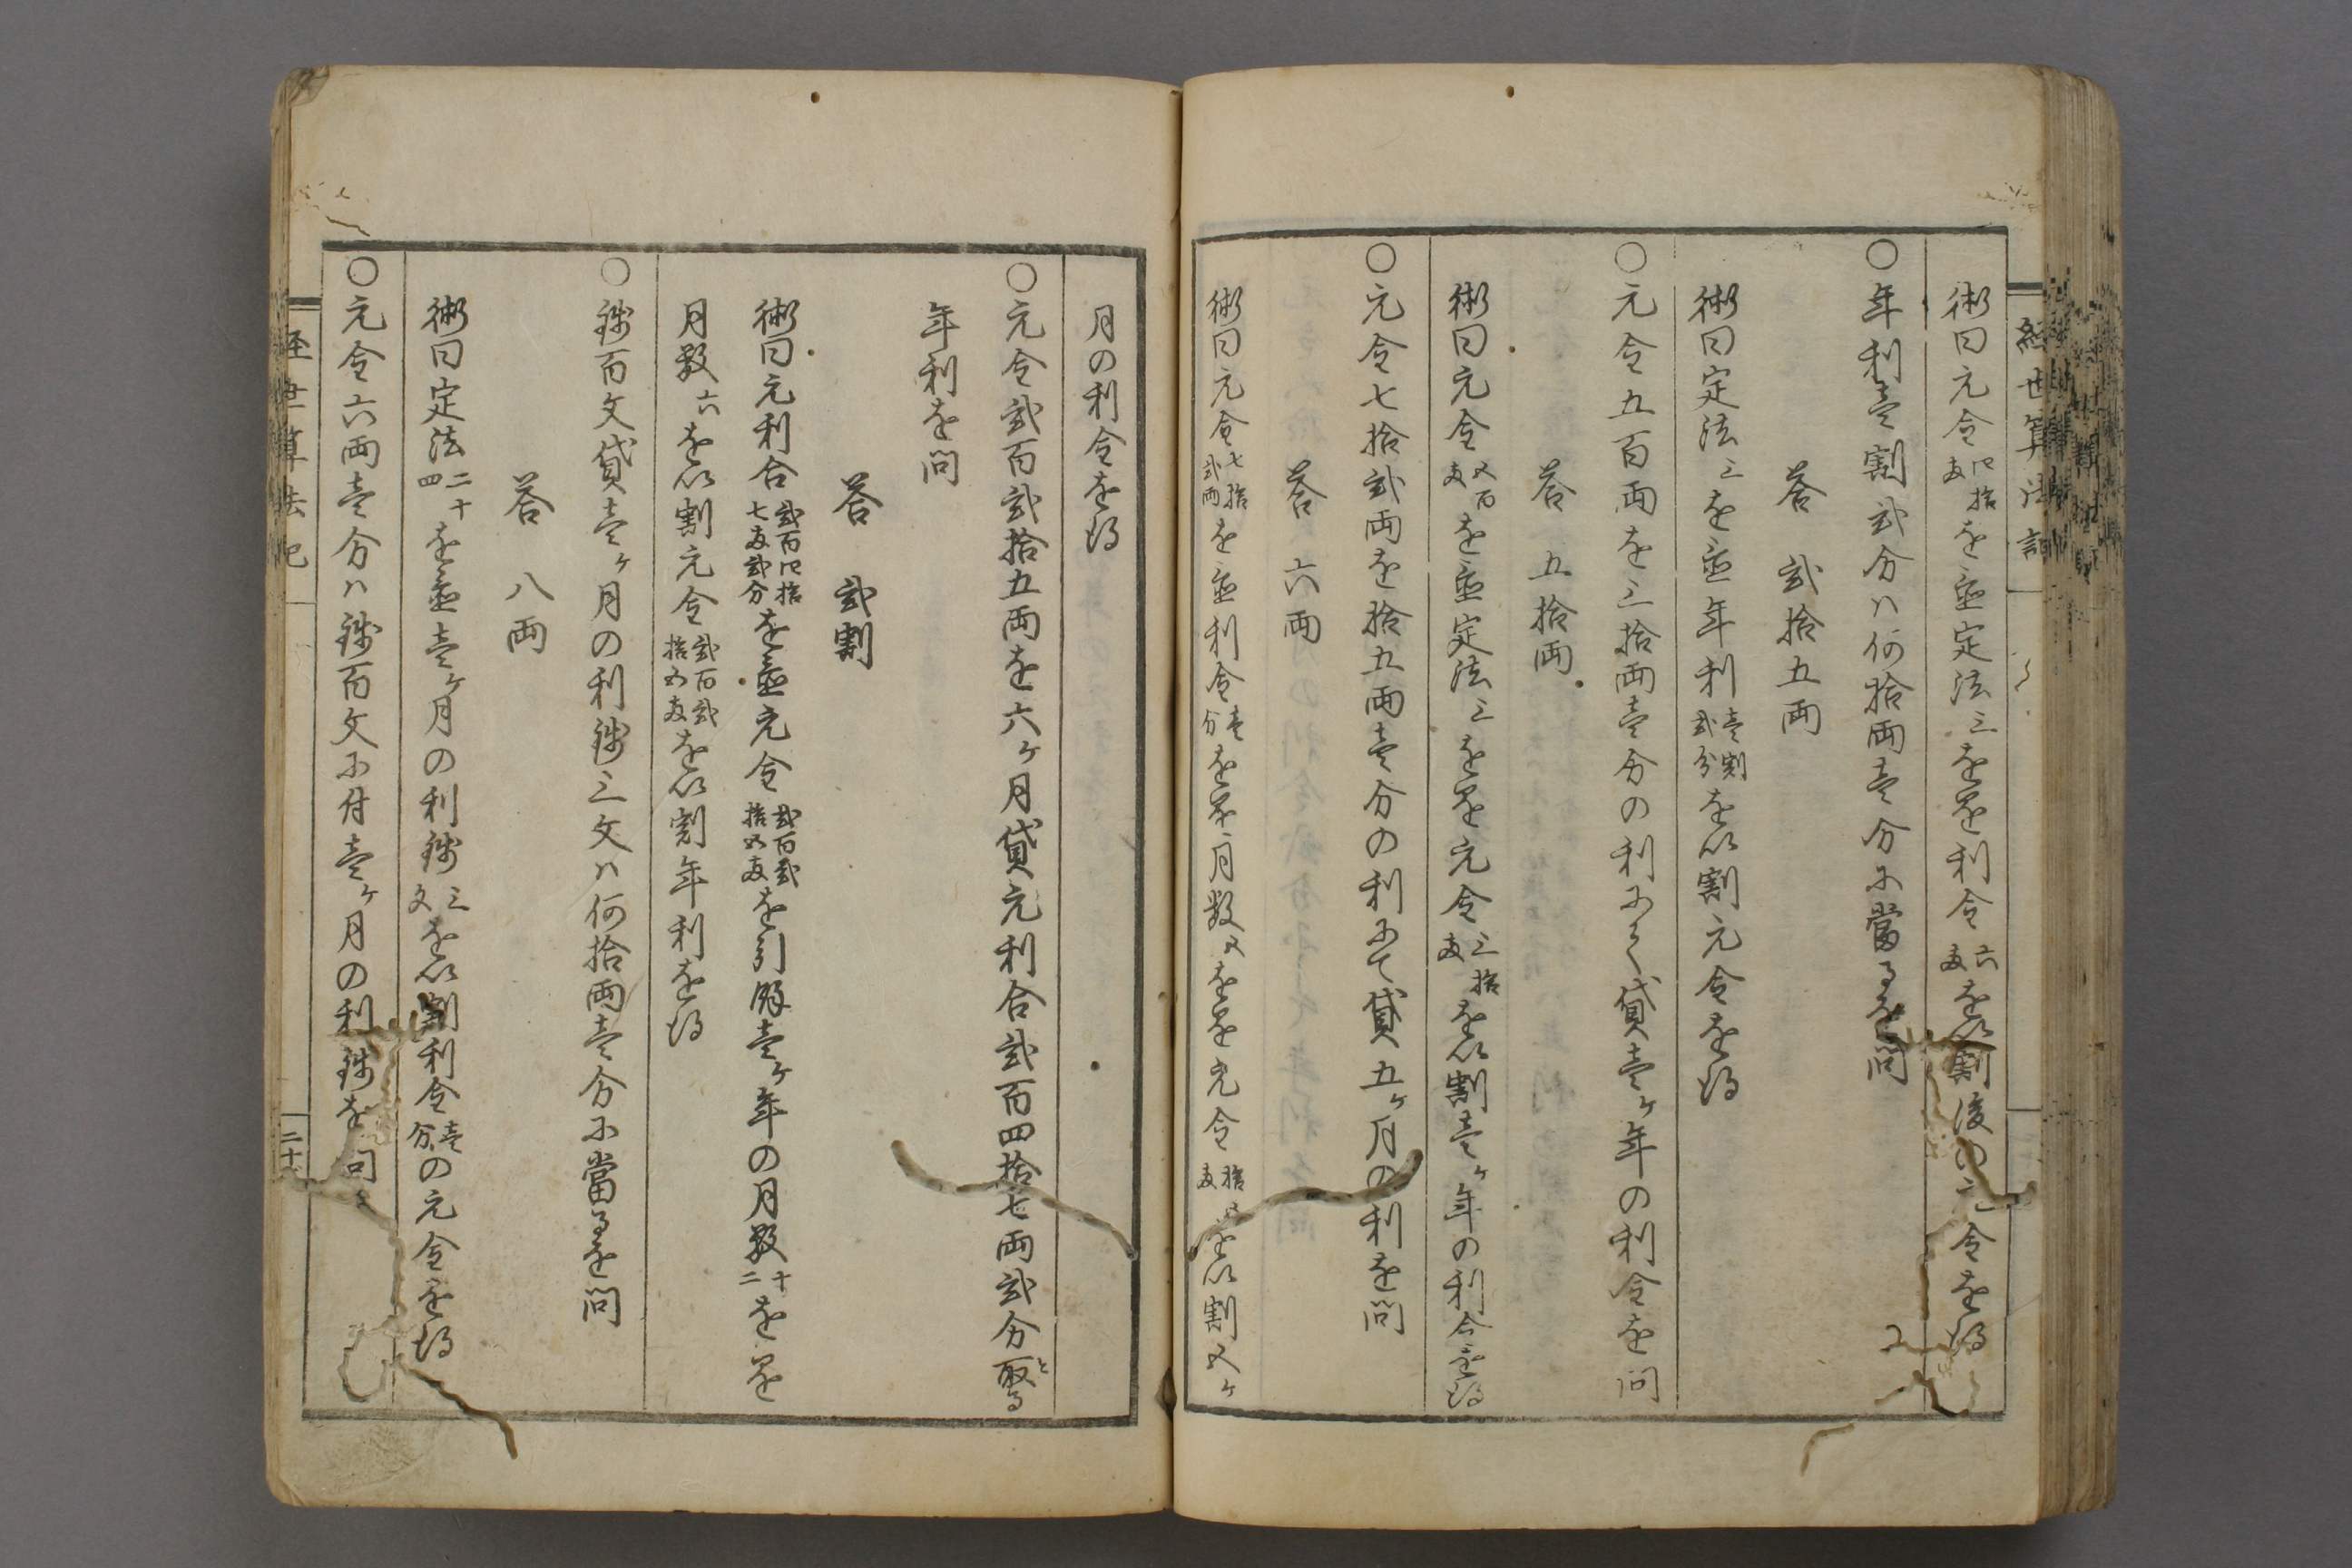 術曰元金四拾両を置定法三を乗利金六両を以割後の元金を得
○年利壱割弐分ハ何拾両壱分に當るを問
答　弐拾五両
術曰定法三を置年利壱割弐分を以割元金を得
○元金五百両を三拾両壱分の利にて貸壱ヶ年の利金を問
答　五拾両
術曰元金五百両を置定法三を乗元金三拾両を以割壱ヶ年の利金を得
○元金七拾弐両を拾五両壱分の利にて貸五ヶ月の利を問
答　六両
術曰元金七拾弐両を置利金壱分を乗月数五を乗元金拾五両を以割五ヶ
月の利金を得
○元金弐百弐拾五両を六ヶ月貸元利合弐百四拾七両弐分取る
年利を問
答　弐割
術曰元利合弐百四拾七両弐分を置元金弐百弐拾五両を引餘壱ヶ年の月数十二を乗
月数六を以割元金弐百弐拾五両を以割年利を得
○銭百文貸壱ヶ月の利銭三文ハ何拾両壱分に當るを問
答　八両
術曰定法二十四を置壱ヶ月の利銭三文を以割利金壱分の元金を得
○元金六両壱分ハ銭百文に付壱ヶ月の利銭を問
経世算法記
二十